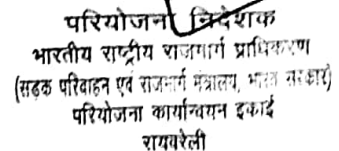 परियोजना निदेशक
भारतीय राष्ट्रीय राजमार्ग प्राधिकरण
(सड़क परिवाहन एवं राजमार्ग मंत्रालय, भारत सरकार)
परियोजना कार्यान्वयन इकाई
रायबरेली